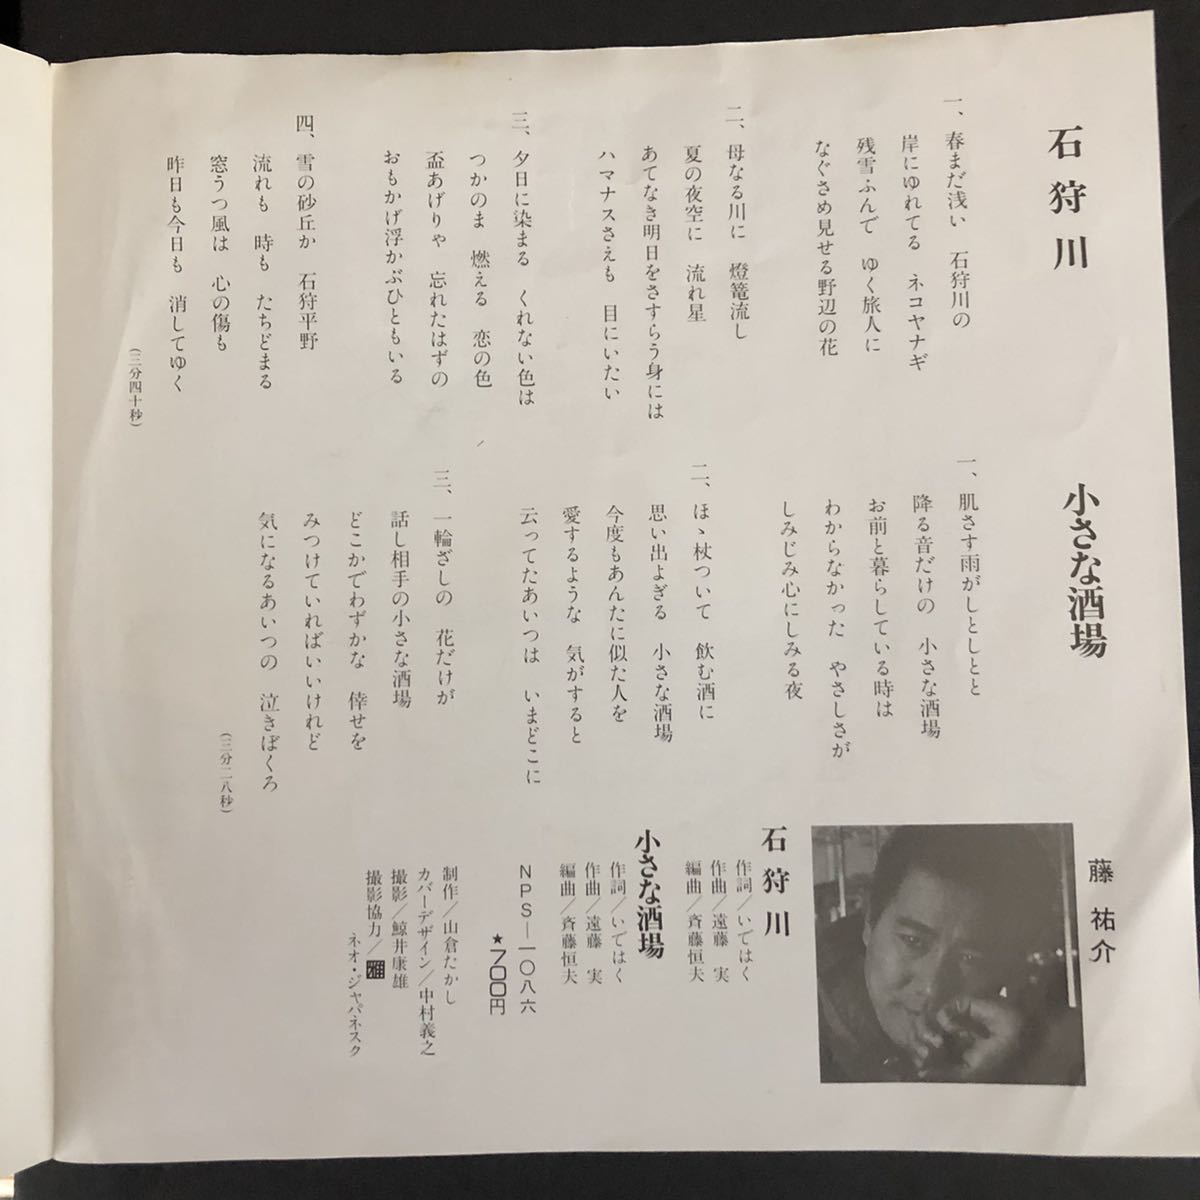 石狩川
一、春まだ浅い　石狩川の
岸にゆれてる　ネコヤナギ
残雪ふんで　ゆく旅人に
なぐさめ見せる野辺の花
二、母なる川に　燈篭流し
夏の夜空に　流れ星
あてなき明日をさすらう身には
ハマナスさえも　目にいたい
三、夕日に染まる　くれない色は
つかのま　燃える　恋の色
盃あげりゃ　忘れたはずの
おもかげ浮かぶひともいる
四、雪の砂丘か　石狩平野
流れも　時も　たちどまる
窓うつ風は　心の傷も
昨日も今日も　消してゆく
（三分四十秒）
小さな酒場
一、肌さす雨がしとしとと
降る音だけの　小さな酒場
お前と暮らしている時は
わからなかった　やさしさが
しみじみ心にしみる夜
二、ほゝ杖ついて　飲む酒に
思い出よぎる　小さな酒場
今度もあんたに似た人を
愛するような　気がすると
云ってたあいつは　いまどこに
三、一輪ざしの　花だけが
話し相手の小さな酒場
どこかでわずかな　倖せを
みつけていればいいけれど
気になるあいつの　泣きぼくろ
（三分二八秒）
藤　祐介
石狩川
作詞／いではく
作曲／遠藤　実
編曲／斉藤恒夫
小さな酒場
作詞／いではく
作曲／遠藤　実
編曲／斉藤恒夫
NPS―一〇八六
★700円
制作／山倉たかし
カバーデザイン／中村義之
撮影／鯨井康雄
撮影協力／
ネオ・ジャパネスク